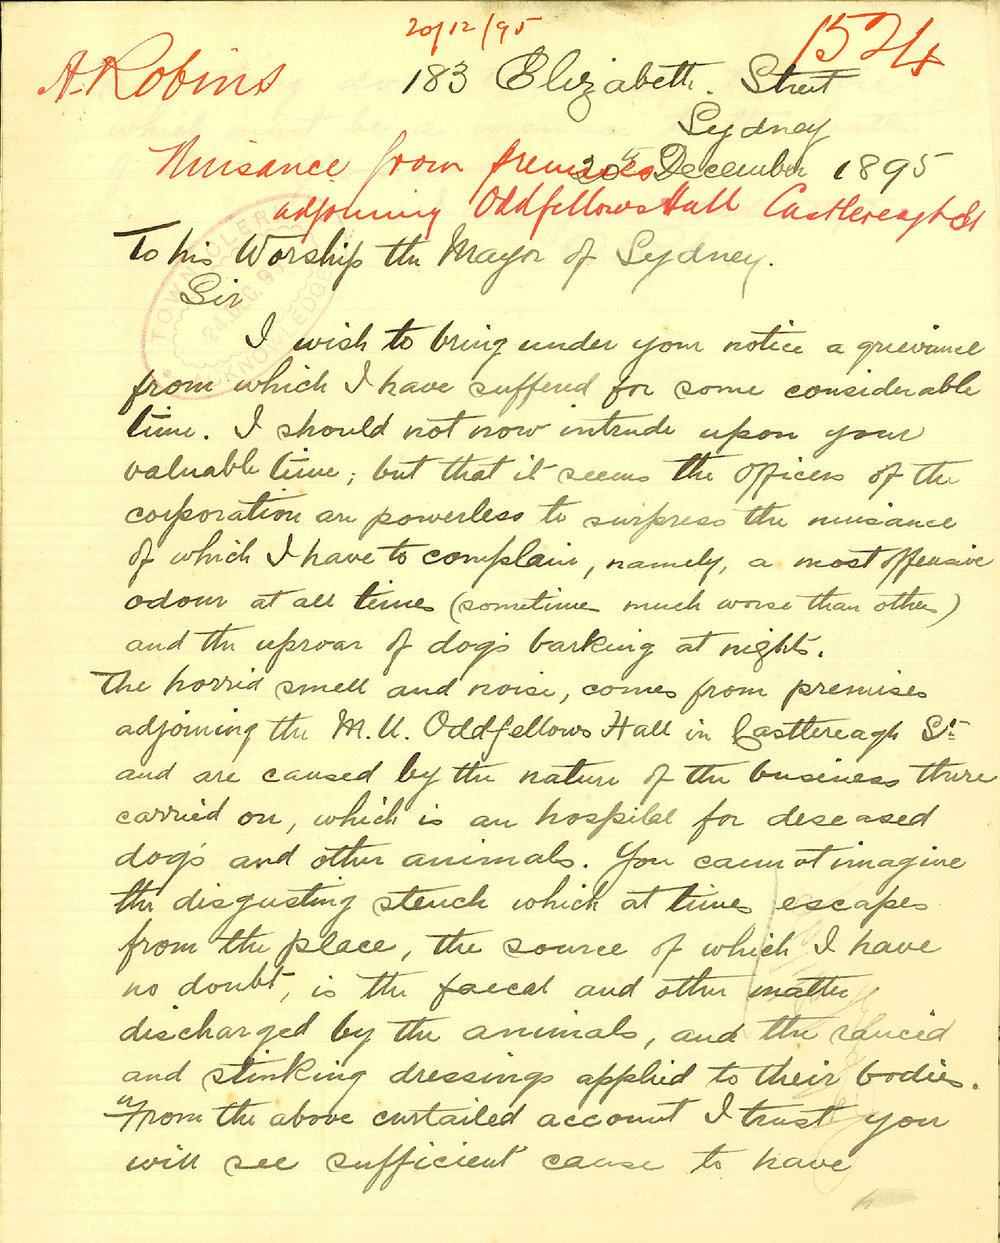 20/12/95
1524
A. Robins
183 Elizabeth. Street
Sydney
Nuisance from premises
20th December 1895
adjoining Oddfellows Hall Castlereagh St
To his Worship the Mayor of Sydney.
Sir
TOWN CLERK
24. DEC. 95
ACKNOWLEDGED
I wish to bring under your notice a grievance
from which I have suffered for some considerable
time. I should not now intrude upon your
valuable time; but that it seems the officers of the
corporation are powerless to surpress the nuisance
of which I have to complain, namely, a most offensive
odour at all times (sometimes much worse than others)
and the uproar of dogs barking at nights.
The horrid smell and noise, comes from premises
adjoining the M.U. Oddfellows Hall in Castlereagh St
and are caused by the nature of the business there
carried on, which is an hospital for deseased
dogs and other animals. You cannot imagine
the disgusting stench which at times escapes
from the place, the source of which I have
no doubt, is the faecal and other matter
discharged by the animals, and the rancid
and stinking dressings applied to their bodies.
From the above curtailed account I trust you
will see sufficient cause to have